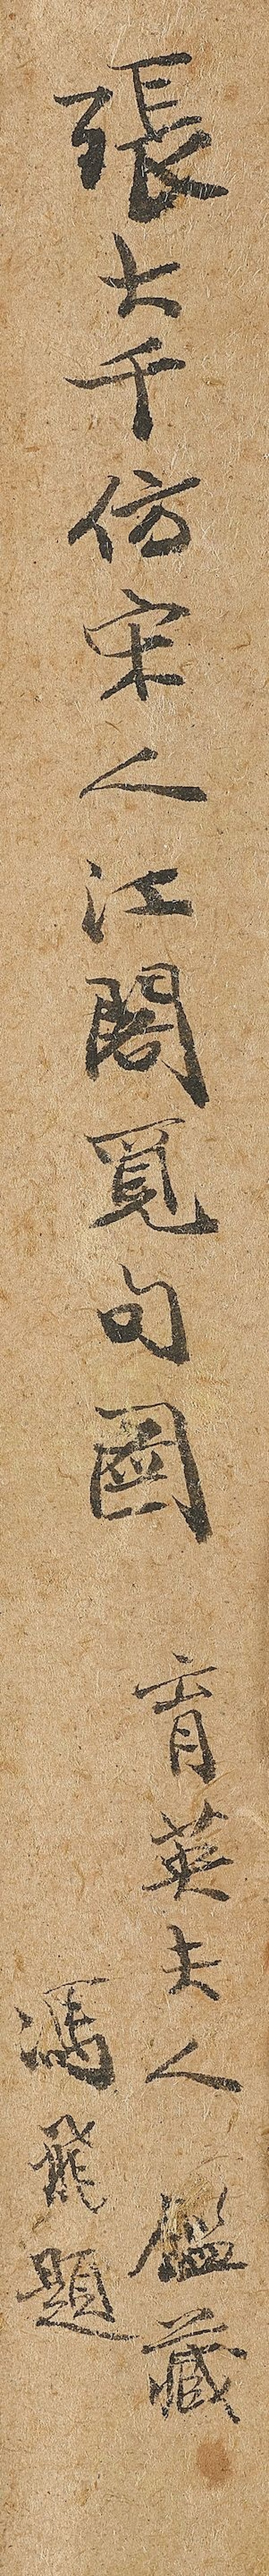 張大千仿宋人江閣覓句圖
育英夫人鑑藏
馮飛題